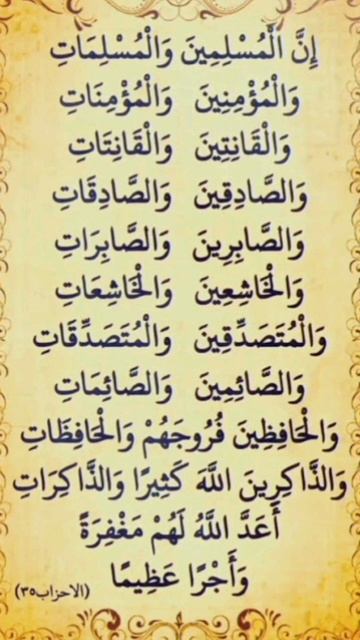 إِنَّ الْمُسْلِمِينَ وَالْمُسْلِمَاتِ
وَالْمُؤْمِنِينَ وَالْمُؤْمِنَاتِ
وَالْقَانِتِينَ وَالْقَانِتَاتِ
وَالصَّادِقِينَ وَالصَّادِقَاتِ
وَالصَّابِرِينَ وَالصَّابِرَاتِ
وَالْخَاشِعِينَ وَالْخَاشِعَاتِ
وَالْمُتَصَدِّقِينَ وَالْمُتَصَدِّقَاتِ
وَالصَّائِمِينَ وَالصَّائِمَاتِ
وَالْحَافِظِينَ فُرُوجَهُمْ وَالْحَافِظَاتِ
وَالذَّاكِرِينَ اللَّهَ كَثِيرًا وَالذَّاكِرَاتِ
أَعَدَّ اللَّهُ لَهُمْ مَغْفِرَةً
وَأَجْرًا عَظِيمًا (الاحزاب٣٥)